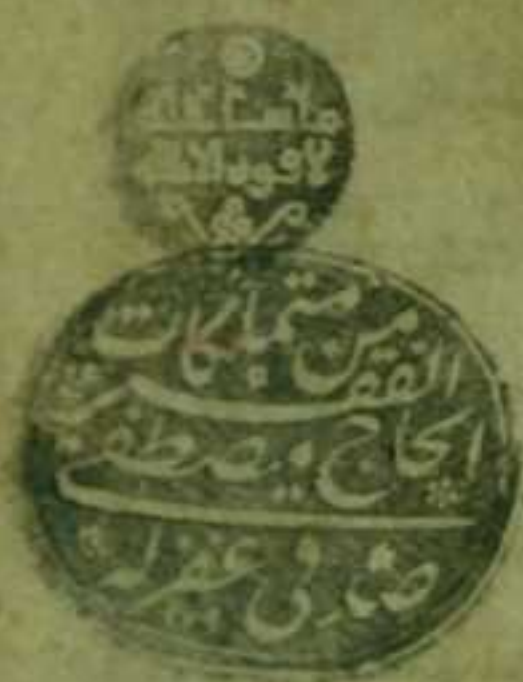 ما شاء الله
لا قوة الا بالله
من متملكات
الفقير
الحاج مصطفى
صدقي غفر له